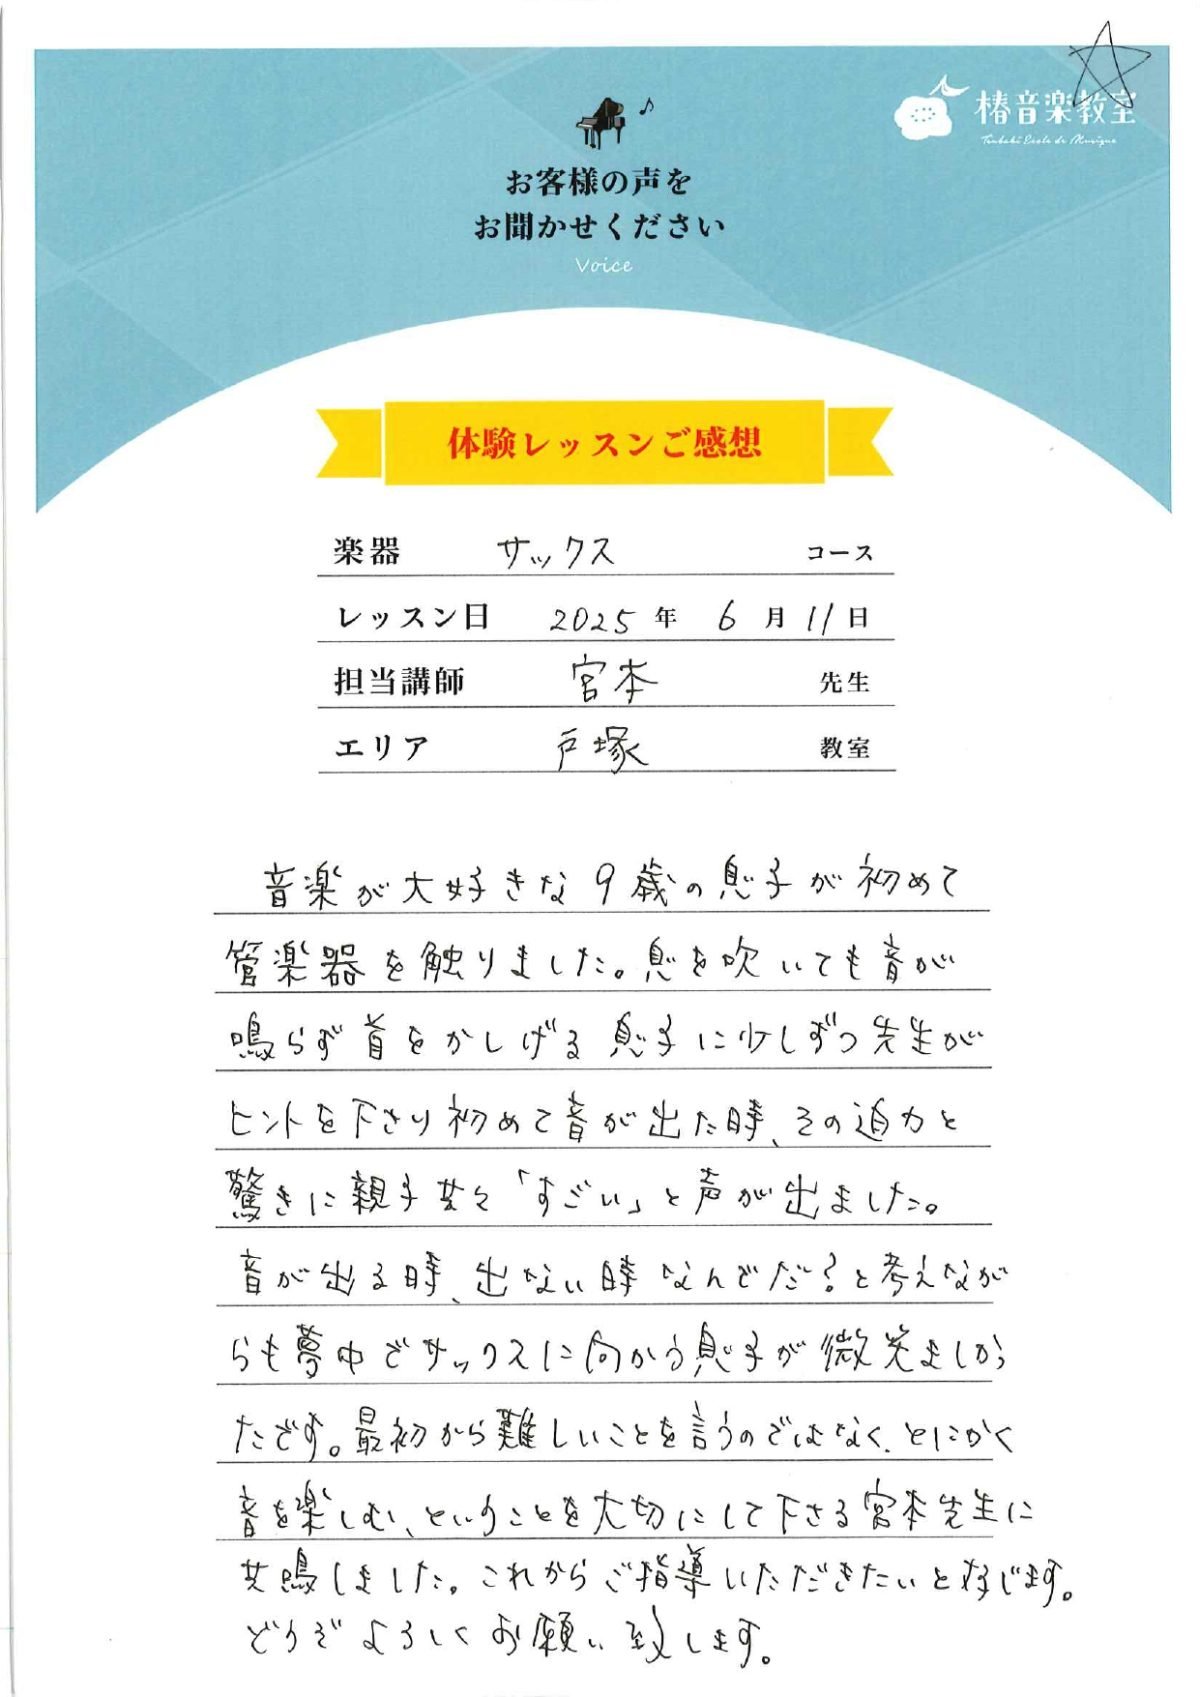 椿音楽教室
Tsubaki Ecole de Musique
お客様の声を
お聞かせください
Voice
体験レッスンご感想
楽器 サックス コース
レッスン日 2025 年 6 月 11 日
担当講師 宮本 先生
エリア 戸塚 教室
音楽が大好きな9歳の息子が初めて
管楽器を触りました。息を吹いても音が
鳴らず首をかしげる息子に少しずつ先生が
ヒントを下さり初めて音が出た時、その迫力と
驚きに親子共々「すごい」と声が出ました。
音が出る時、出ない時なんでだ?と考えなが
らも夢中でサックスに向かう息子が微笑ましかっ
たです。最初から難しいことを言うのではなく、とにかく
音を楽しむ、ということを大切にして下さる宮本先生に
共鳴しました。これからご指導いただきたいと存じます。
どうぞよろしくお願い致します。